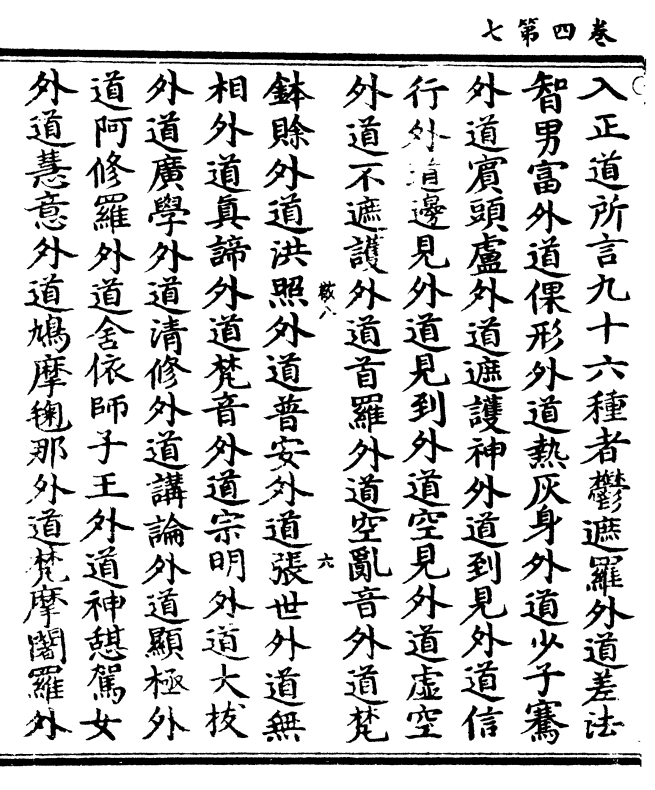 卷四第七
入正道所言九十六種者鬱遮羅外道差法
智男富外道倮形外道熱灰身外道少子騫
外道賓頭盧外道遮護神外道到見外道信
行外道邊見外道見到外道空見外道虛空
外道不遮護外道首羅外道空亂音外道梵
六
鉢賖外道洪照外道普安外道張世外道無
相外道真諦外道梵音外道宗明外道大拔
外道廣學外道清修外道講論外道顯極外
道阿修羅外道舍依師子王外道神憇駕女
外道慧意外道鳩摩毱那外道梵摩闍羅外